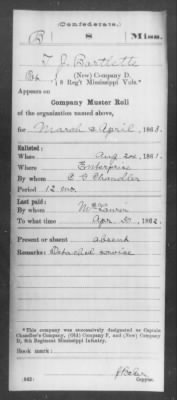 (Confederate.)
B 8 Miss.
T J Bartlette
(New) Company D,
8 Reg't Mississippi Vols.*
Appears on
Company Muster Roll
of the organization named above,
for March & April, 1863.
Enlisted:
When Aug 24, 1861.
Where Enterprise
By whom C C Chandler
Period 12 mo.
Last paid:
By whom McLaurin
To what time 1862.
Present or absent absent
Remarks: Detached service
*This company was successively designated as Captain
Chandler's Company, (Old) Company F, and (New) Company
D, 8th Regiment Mississippi Infantry.
Book mark:
(642)
Copyist.